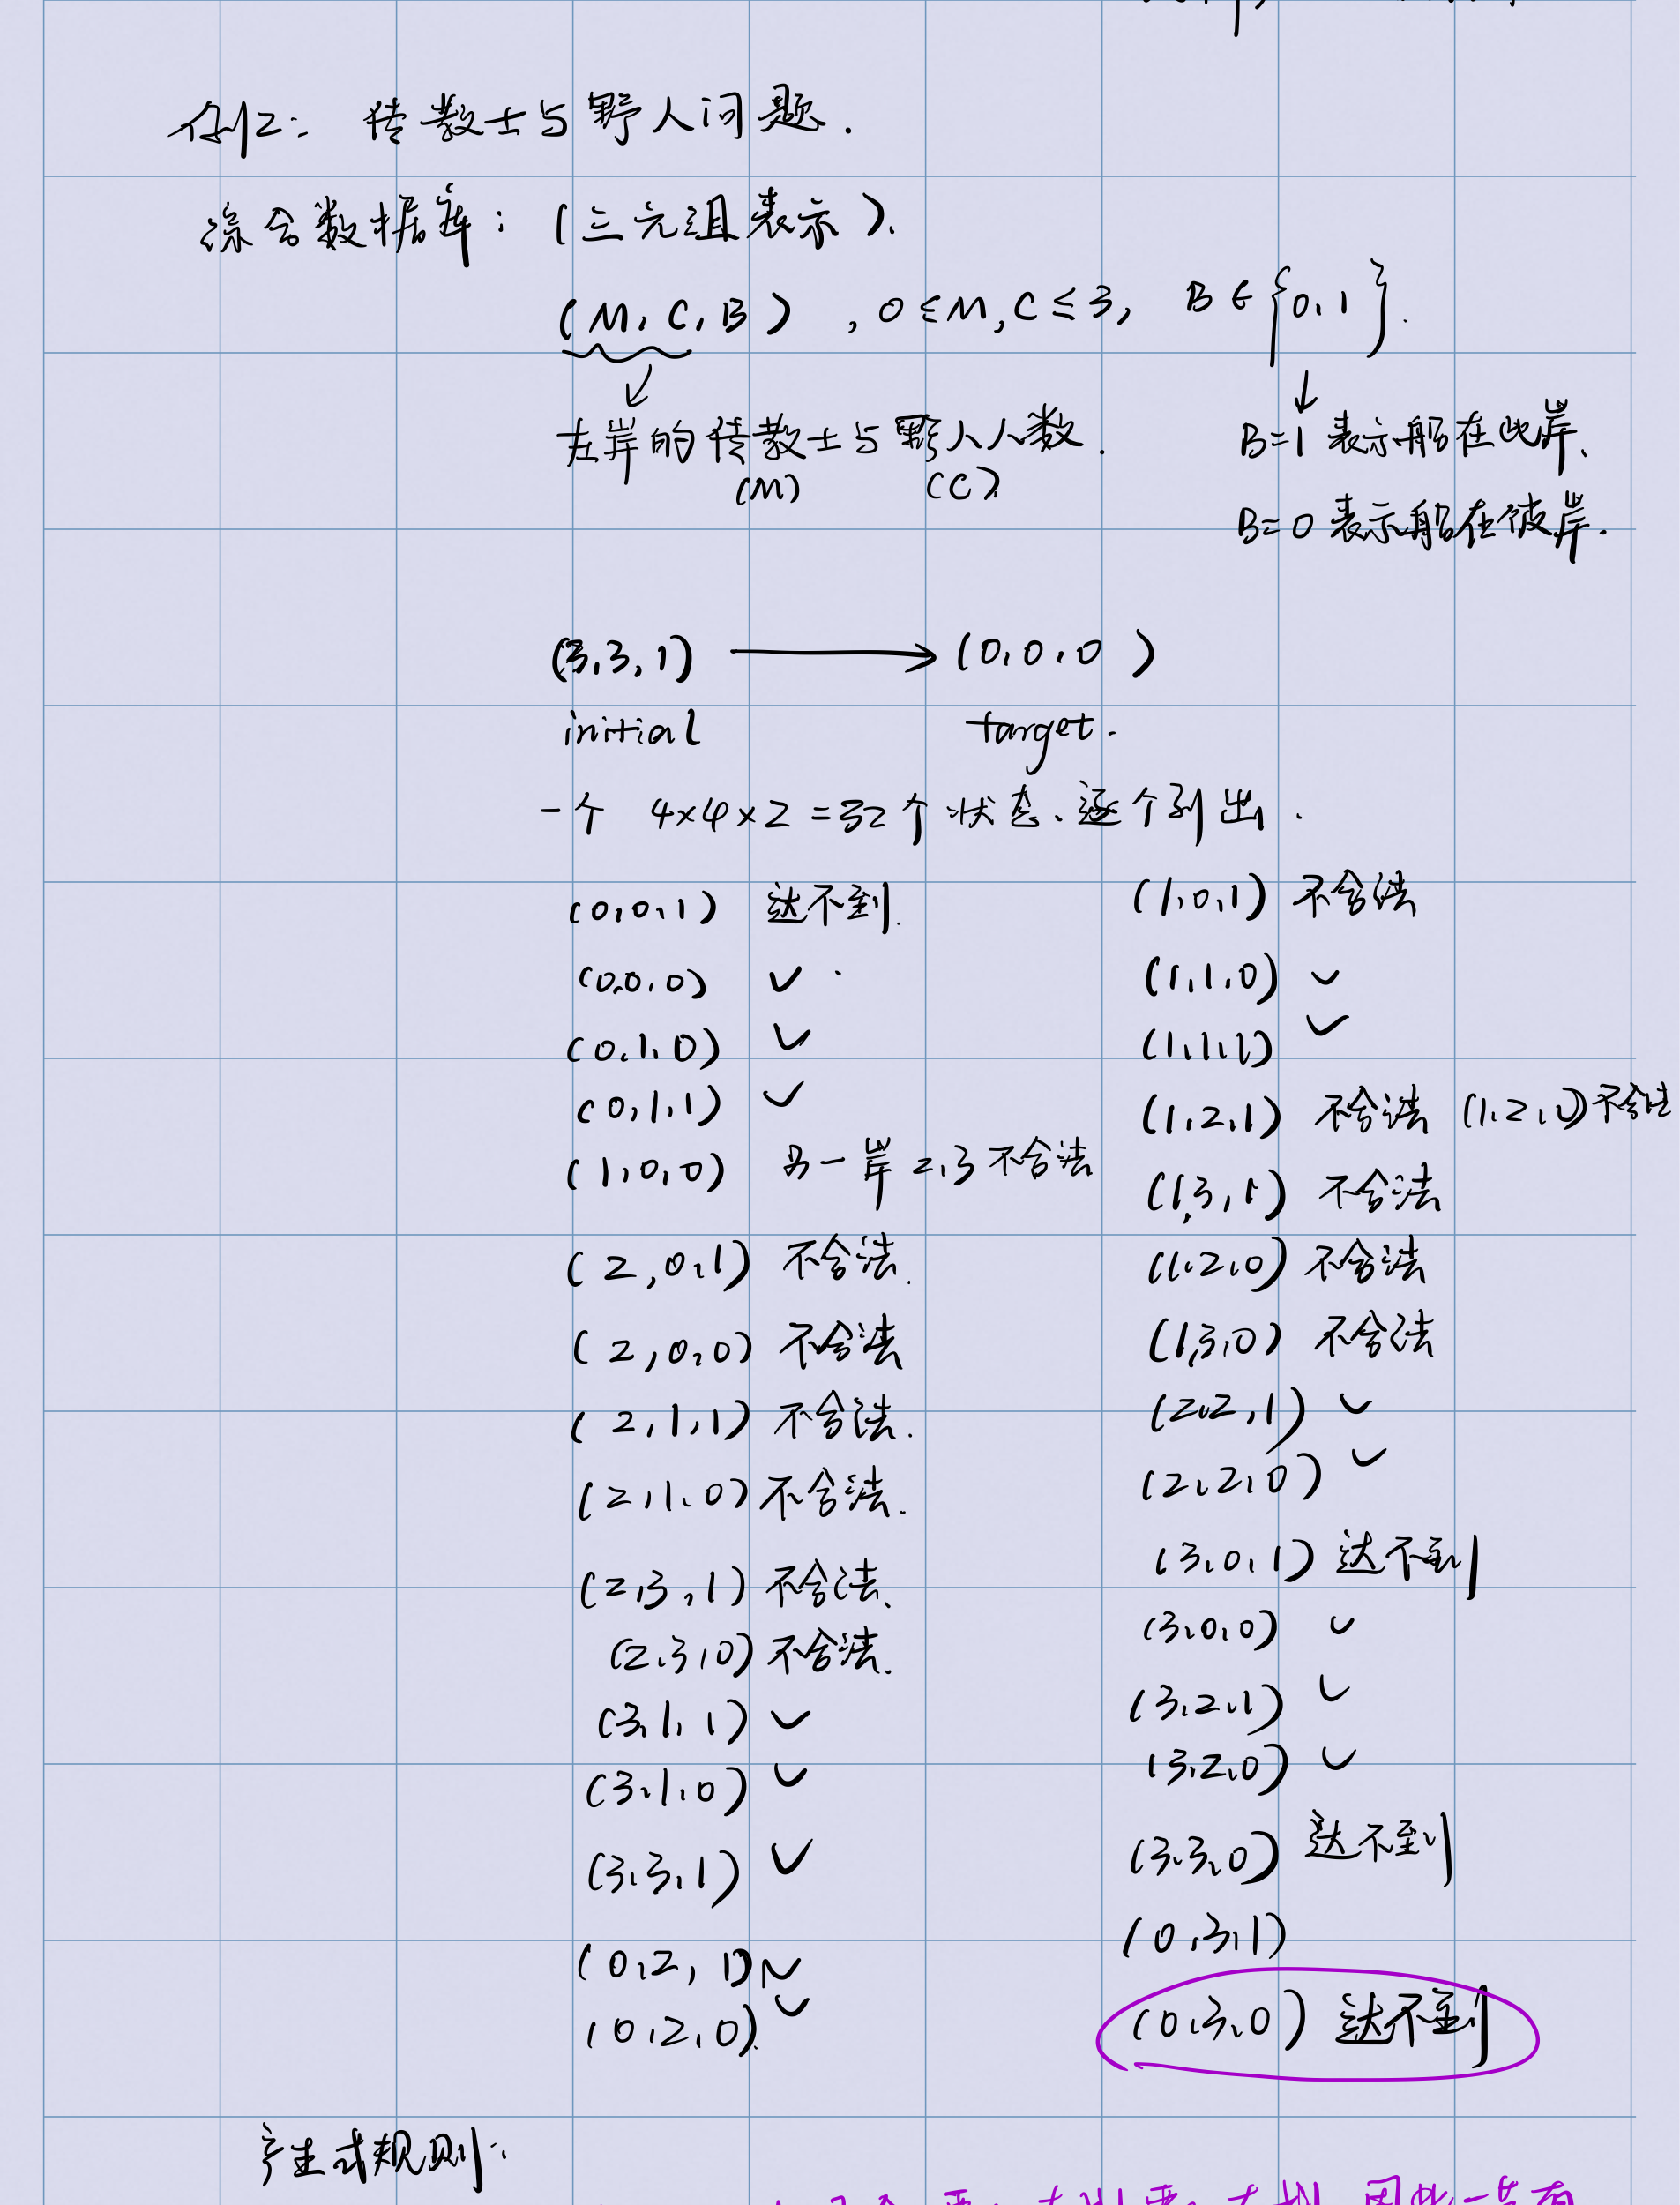 例2: 传教士与野人问题.
综合数据库: (三元组表示).
(M, C, B), 0≤M,C≤3, B∈{0,1}.
左岸的传教士与野人人数.
(M) (C)
B=1 表示船在此岸、
B=0 表示船在彼岸.
(3,3,1) → (0,0,0)
initial target.
一个 4×4×2=32个状态、逐个列出.
(0,0,1) 达不到.
(0,0,0) ✓
(0,1,0) ✓
(0,1,1) ✓
(1,0,0) 另一岸 2,3 不合法
(2,0,1) 不合法.
(2,0,0) 不合法
(2,1,1) 不合法.
(2,1,0) 不合法.
(2,3,1) 不合法、
(2,3,0) 不合法.
(3,1,1) ✓
(3,1,0) ✓
(3,3,1) ✓
(0,2,1) ✓
(0,2,0) ✓
(1,0,1) 不合法
(1,1,0) ✓
(1,1,1) ✓
(1,2,1) 不合法 (1,2,0) 不合法
(1,3,1) 不合法
(1,2,0) 不合法
(1,3,0) 不合法
(2,2,1) ✓
(2,2,0) ✓
(3,0,1) 达不到
(3,0,0) ✓
(3,2,1) ✓
(3,2,0) ✓
(3,3,0) 达不到
(0,3,1)
(0,3,0) 达不到
产生式规则: